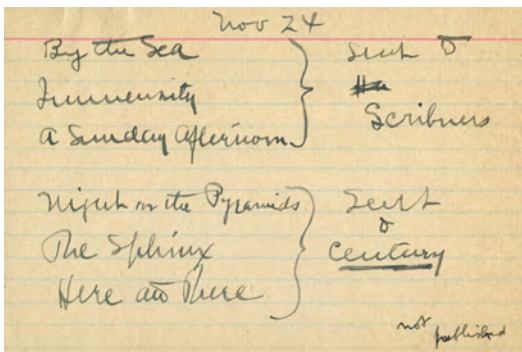 Nov 24
By the Sea
Immensity
A Sunday Afternoon
Sent to
Scribners
Night on the Pyramids
The Sphinx
Here and There
Sent
to
Century
not published